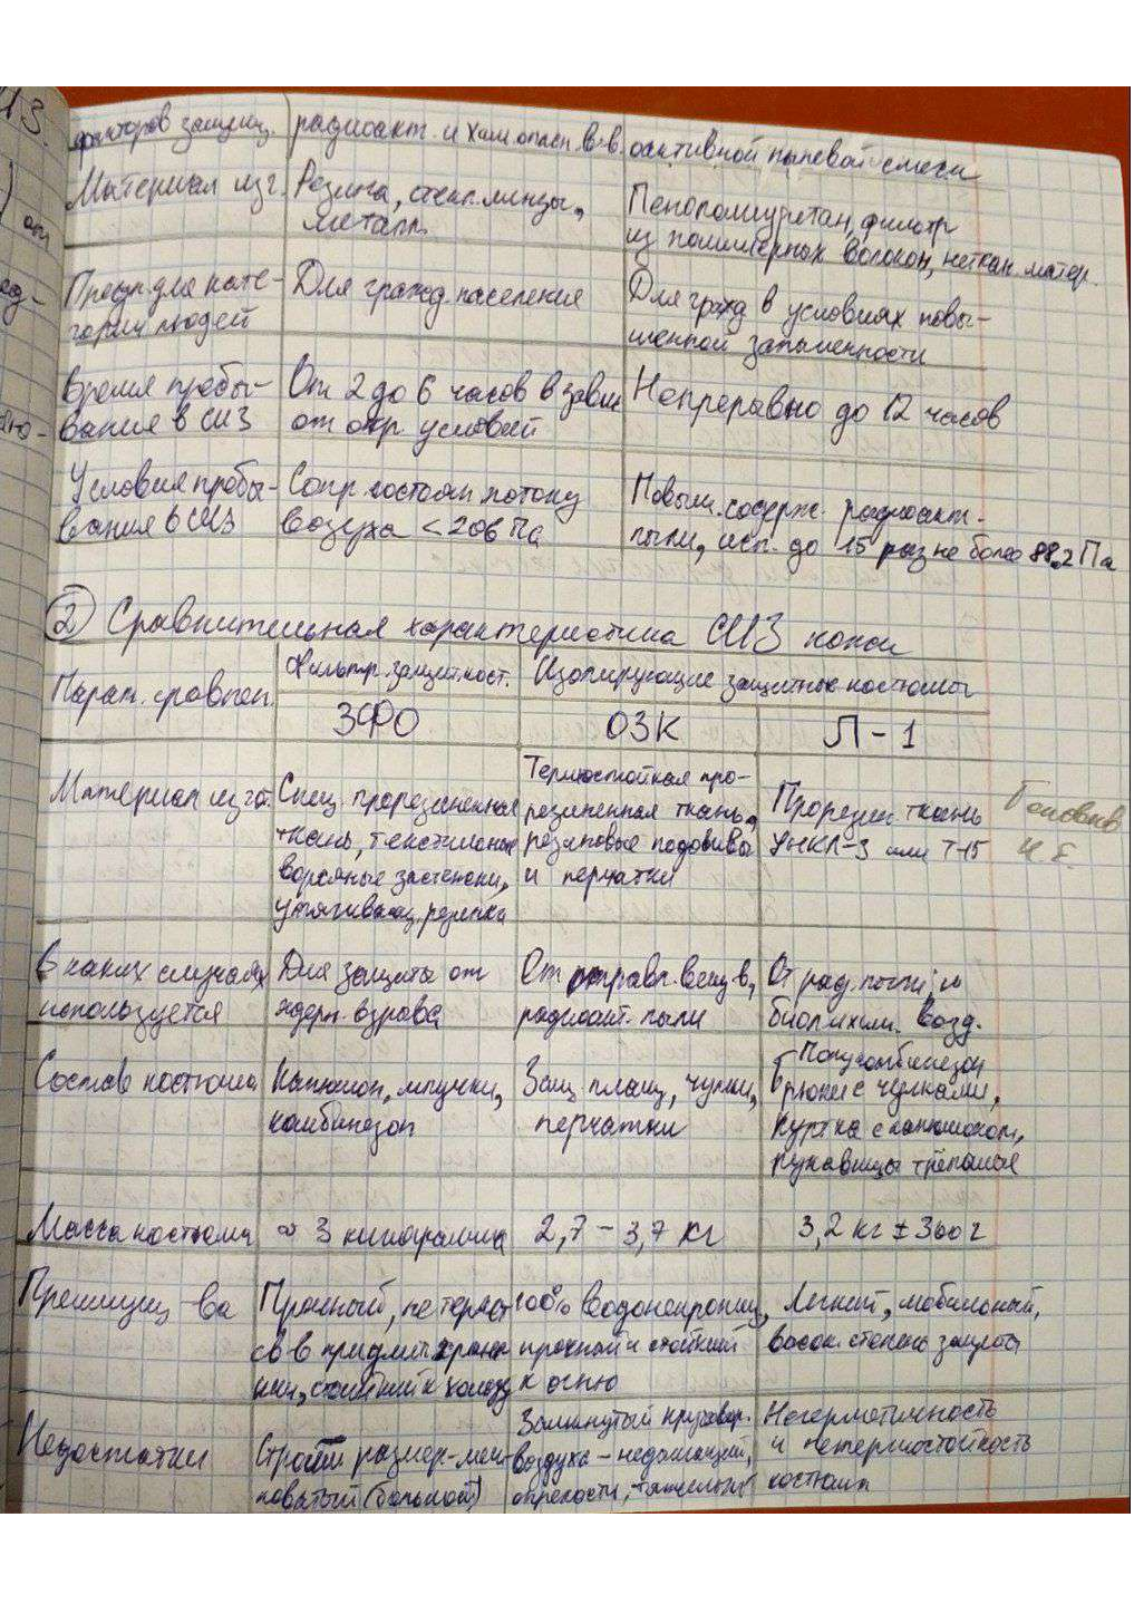 факторов защищ. радиоакт. и хим. опасн. в-в. оактивной пылевой смеси
Материал изг. Резина, стекл. линзы, Пенополиуретан, фильтр
металл. из полимерных волокон, неткан. матер.
Предн. для кате- Для гражд. населения Для гражд в условиях повы-
гории людей шенной запыленности
Время пробы- От 2 до 6 часов в завис Непрерывно до 12 часов
вания в СИЗ от окр. условий
Условия пробы- Сопр. состоян. потоку Повыш. содерж. радиоакт.
вания в СИЗ воздуха < 206 Па пыли, исп. до 15 раз не более 88,2 Па
② Сравнительная характеристика СИЗ кожи
Парам. сравнен. Фильтр. защит. кост. Изолирующие защитные костюмы
ЗФО ОЗК Л-1
Термостойкая про-
Материал изгот. Спец. прорезиненная резиненная ткань, Прорезин. ткань
ткань, текстильные резиновые подошвы УНКЛ-3 или Т-15
ворсяные застежки, и перчатки
утягивающ. резинка
В каких случаях Для защиты от От отравл. веществ, От рад. пыли, и
используется ядерн. взрыва радиоакт. пыли биол. и хим. возд.
Полукомбинезон
Состав костюма Капюшон, ципучки, Защ. плащ, чулки, Брюки с чулками,
комбинезон перчатки куртка с капюшоном,
рукавицы трёпалые
Масса костюма ≈ 3 килограмма 2,7 - 3,7 кг 3,2 кг ± 300 г
Преимущ-ва Прочный, не теряет 100% водонепрониц, Легкий, мобильный,
св-в при длит. хране- прочный и стойкий высок. степень защиты
нии, стойкий к холоду к огню
Замкнутый круговор. Негерметичность
Недостатки Строгий размер-мел- воздуха - недышащий, и нетермостойкость
коватый (большой) опрелости, тяжелый костюма
Головнёв
И. Е.